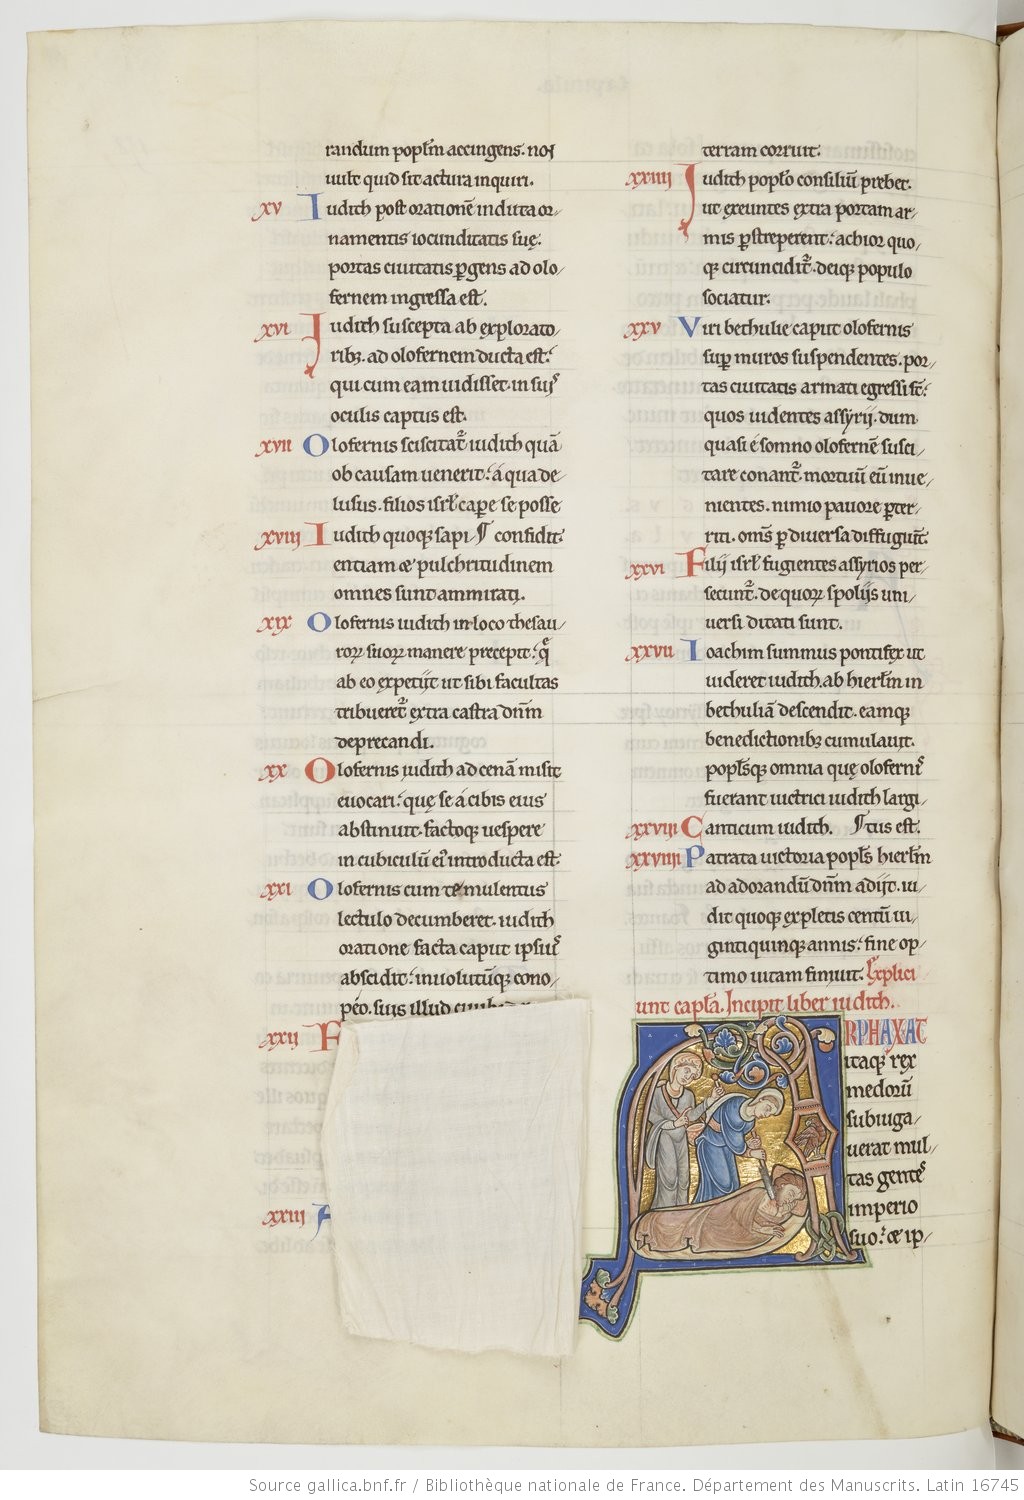 randum popl̄m accingens. noɫ
uult quid sit actura inquiri.
xv Iudith post orationē induta or-
namentis iocunditatis suę.
portas ciuitatis ꝑgens ad olo-
fernem ingressa est.
xvi Iudith suscepta ab explorato-
ribꝫ. ad olofernem ducta est.
qui cum eam uidisset. in suis
oculis captus est.
xvii Olofernis sciscitat᷑ iudith quā
ob causam uenerit. á qua de-
lusus. filios isrł capere se posse
xviii Iudith quoqꝫ sapi- ¶ confidit.
entiam & pulchritudinem
omnes sunt ammirati.
xix Olofernis iudith in loco thesau-
roꝝ suoꝝ manere precepit. q̄
ab eo expetijt ut sibi facultas
tribueret᷑ extra castra dn̄m
deprecandi.
xx Olofernis iudith ad cenā misit
euocari. quę se á cibis eius
abstinuit. factoqꝫ uespere
in cubiculū ei᷒ introducta est.
xxi Olofernis cum temulentus
lectulo decumberet. iudith
oratione facta caput ipsius
abscidit. inuolutūqꝫ cono-
péo. suis illud
xxii F
xxiii A
terram corruit.
xxiiii Iudith popl̄o consiliū prebet.
ut exeuntes extra portam ar-
mis ꝑstreperent. achior quo-
qꝫ circuncidit᷑. deiqꝫ populo
sociatur.
xxv Viri bethulie caput olofernis
suꝑ muros suspendentes. por-
tas ciuitatis armati egressi st̄.
quos uidentes assyrij. dum
quasi é somno olofernē susci-
tare conant᷑. mortuū eū inue-
nientes. nimio pauore ꝑter-
riti. om̄s ꝑ diuersa diffugiūt.
xxvi Filij isrł fugientes assyrios per-
secunt᷑. de quoꝝ spolijs uni-
uersi ditati sunt.
xxvii Ioachim summus pontifex ut
uideret iudith. ab hierłm in
bethuliā descendit. eamqꝫ
benedictionibꝫ cumulauit.
popl̄sqꝫ omnia quę olofernis
fuerant uictrici iudith largi-
xxviii Canticum iudith. ¶ tus est.
xxviiii Patrata uictoria popl̄s hierłm
ad adorandū dn̄m adijt. iu-
dit quoqꝫ expletis centū ui-
gintiquinqꝫ annis. fine op-
timo uitam finiuit. Explici
unt capl̄a. Incipit liber iudith.
ARPHAXAT
itaqꝫ rex
medorū
subiuga-
uerat mul-
tas gentes
imperio
suo. & ip-
Source gallica.bnf.fr / Bibliothèque nationale de France. Département des Manuscrits. Latin 16745